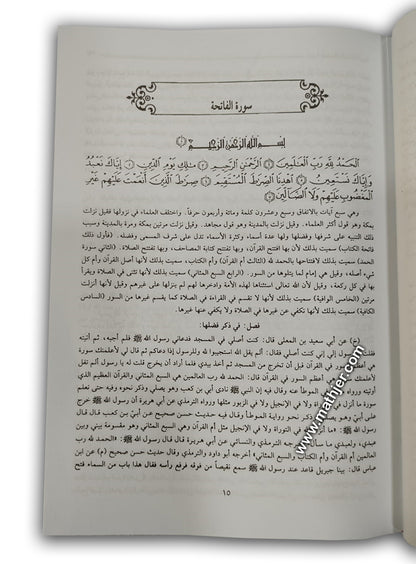 سورة الفاتحة
بسم الله الرحمن الرحيم
الحمد لله رب العالمين ۝ الرحمن الرحيم ۝ مالك يوم الدين ۝ إياك نعبد
وإياك نستعين ۝ اهدنا الصراط المستقيم ۝ صراط الذين أنعمت عليهم غير
المغضوب عليهم ولا الضالين
وهي سبع آيات بالاتفاق وسبع وعشرون كلمة ومائة وأربعون حرفاً. واختلف العلماء في نزولها فقيل نزلت
بمكة وهو قول أكثر العلماء. وقيل نزلت بالمدينة وهو قول مجاهد. وقيل نزلت مرتين مرة بمكة ومرة بالمدينة وسبب
ذلك التنبيه على شرفها وفضلها ولها عدة أسماء، وكثرة الأسماء تدل على شرف المسمى وفضله. (فأول ذلك
فاتحة الكتاب) سميت بذلك لأن بها افتتح القرآن، وبها تفتتح كتابة المصاحف، وبها تفتتح الصلاة. (الثاني سورة
الحمد) سميت بذلك لافتتاحها بالحمد لله (الثالث أم القرآن) وأم الكتاب، سميت بذلك لأنها أصل القرآن وأم كل
شيء أصله، وقيل هي إمام لما يتلوها من السور. (الرابع السبع المثاني) سميت بذلك لأنها تثنى في الصلاة ويقرأ
بها في كل ركعة، وقيل لأن الله تعالى استثناها لهذه الأمة وادخرها لهم لم ينزلها على غيرهم وقيل لأنها أنزلت
مرتين (الخامس الوافية) سميت بذلك لأنها لا تقسم في القراءة في الصلاة كما يقسم غيرها من السور (السادس
الكافية) سميت بذلك لأنها تكفي عن غيرها في الصلاة ولا يكفي عنها غيرها.
فصل: في ذكر فضلها:
(خ) عن أبي سعيد بن المعلى قال: كنت أصلي في المسجد فدعاني رسول الله ﷺ فلم أجبه، ثم أتيته
فقلت رسول الله إني كنت أصلي فقال: ألم يقل الله استجيبوا لله وللرسول إذا دعاكم ثم قال لي
لأعلمنك سورة هي أعظم السور في القرآن قبل أن تخرج من المسجد ثم أخذ بيدي فلما أراد أن يخرج قلت له ألم تقل
لأعلمنك سورة هي أعظم سورة في القرآن قال: الحمد لله رب العالمين هي السبع المثاني والقرآن العظيم الذي
الموطأ عنه قال فيه إن النبي ﷺ نادى أبي بن كعب وهو يصلي وذكر نحوه وفيه حتى تعلم
سورة ما أنزل في التوراة ولا في الإنجيل ولا في الزبور مثلها ورواه الترمذي عن أبي هريرة أن رسول الله ﷺ خرج
على أبي وهو يصلي وذكر نحو رواية الموطأ وقال فيه حديث حسن صحيح
رسول الله ﷺ: «ما أنزل في التوراة ولا في الإنجيل مثل أم القرآن وهي السبع المثاني وهي مقسومة بيني وبين
عبدي، ولعبدي ما سأل الترمذي والنسائي عن أبي هريرة قال قال رسول الله ﷺ: «الحمد لله رب
العالمين أم القرآن وأم الكتاب والسبع المثاني» أخرجه أبو داود والترمذي وقال حديث حسن صحيح (م) عن ابن
عباس قال: بينا جبريل قاعد عند رسول الله ﷺ سمع نقيضاً من فوقه فرفع رأسه فقال هذا باب من السماء فتح
١٥
www.mathjer.com